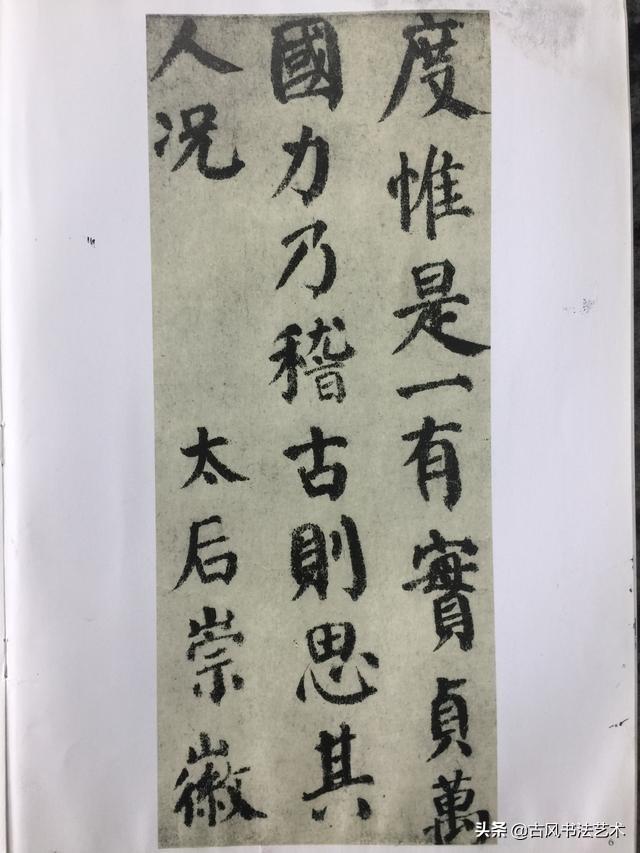 度惟是一有實貞萬
國力乃稽古則思其
人况 太后崇徽
头条 @古风书法艺术
6